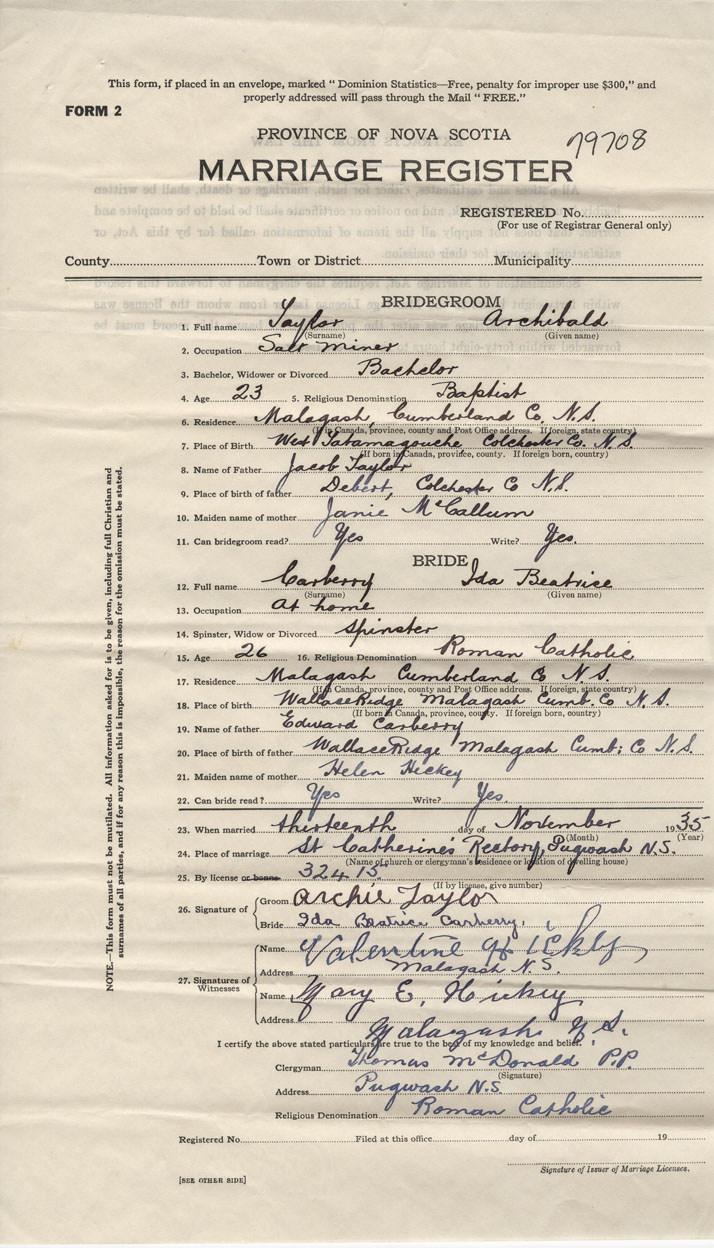 This form, if placed in an envelope, marked " Dominion Statistics—Free, penalty for improper use $300," and
properly addressed will pass through the Mail " FREE."
FORM 2
PROVINCE OF NOVA SCOTIA
79708
MARRIAGE REGISTER
REGISTERED No.
(For use of Registrar General only)
County Town or District Municipality
BRIDEGROOM
1. Full name Taylor Archibald
(Surname) (Given name)
2. Occupation Salt Miner
3. Bachelor, Widower or Divorced Bachelor
4. Age 23 5. Religious Denomination Baptist
6. Residence Malagash, Cumberland Co. N.S.
(If in Canada, province, county and Post Office address. If foreign, state country)
7. Place of Birth West Tatamagouche Colchester Co. N.S.
(If born in Canada, province, county. If foreign born, country)
8. Name of Father Jacob Taylor
9. Place of birth of father Debert, Colchester Co N.S.
10. Maiden name of mother Janie McCallum
11. Can bridegroom read? Yes Write? Yes.
BRIDE
12. Full name Carberry Ida Beatrice
(Surname) (Given name)
13. Occupation at home
14. Spinster, Widow or Divorced Spinster
15. Age 26 16. Religious Denomination Roman Catholic
17. Residence Malagash Cumberland Co N.S.
(If in Canada, province, county and Post Office address. If foreign, state country)
18. Place of birth Wallace Ridge Malagash Cumb. Co N.S.
(If born in Canada, province, county. If foreign born, country)
19. Name of father Edward Carberry
20. Place of birth of father Wallace Ridge Malagash Cumb: Co N.S.
21. Maiden name of mother Helen Hickey
22. Can bride read? Yes Write? Yes.
23. When married thirteenth day of November 1935
(Month) (Year)
24. Place of marriage St Catherine's Rectory, Pugwash N.S.
(Name of church or clergyman's residence or location of dwelling house)
25. By license or banns 32415.
(If by license, give number)
26. Signature of Groom Archie Taylor
Bride Ida Beatrice Carberry.
27. Signatures of Witnesses
Name Valentine Hickey
Address Malagash N.S.
Name Mary E. Hickey
Address Malagash N.S.
I certify the above stated particulars are true to the best of my knowledge and belief.
Clergyman Thomas McDonald P.P.
(Signature)
Address Pugwash N.S.
Religious Denomination Roman Catholic
Registered No. Filed at this office day of 19
Signature of Issuer of Marriage Licenses.
[SEE OTHER SIDE]
NOTE.—This form must not be mutilated. All information asked for is to be given, including full Christian and
surnames of all parties, and if for any reason this is impossible, the reason for the omission must be stated.